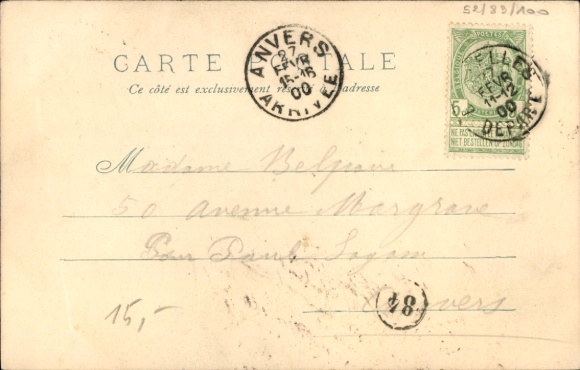 52/83/100
CARTE POSTALE
Ce côté est exclusivement réservé à l'adresse
ANVERS
27
FEVR
15-16
00
ARRIVÉE
POSTES
ELLES
27
FEVR
11-12
00
DEPART
NE PAS LIVRER LE DIMANCHE
NIET BESTELLEN OP ZONDAG
Madame Belpaire
50 Avenue Margrave
Pour Paula
Anvers
84
15,-